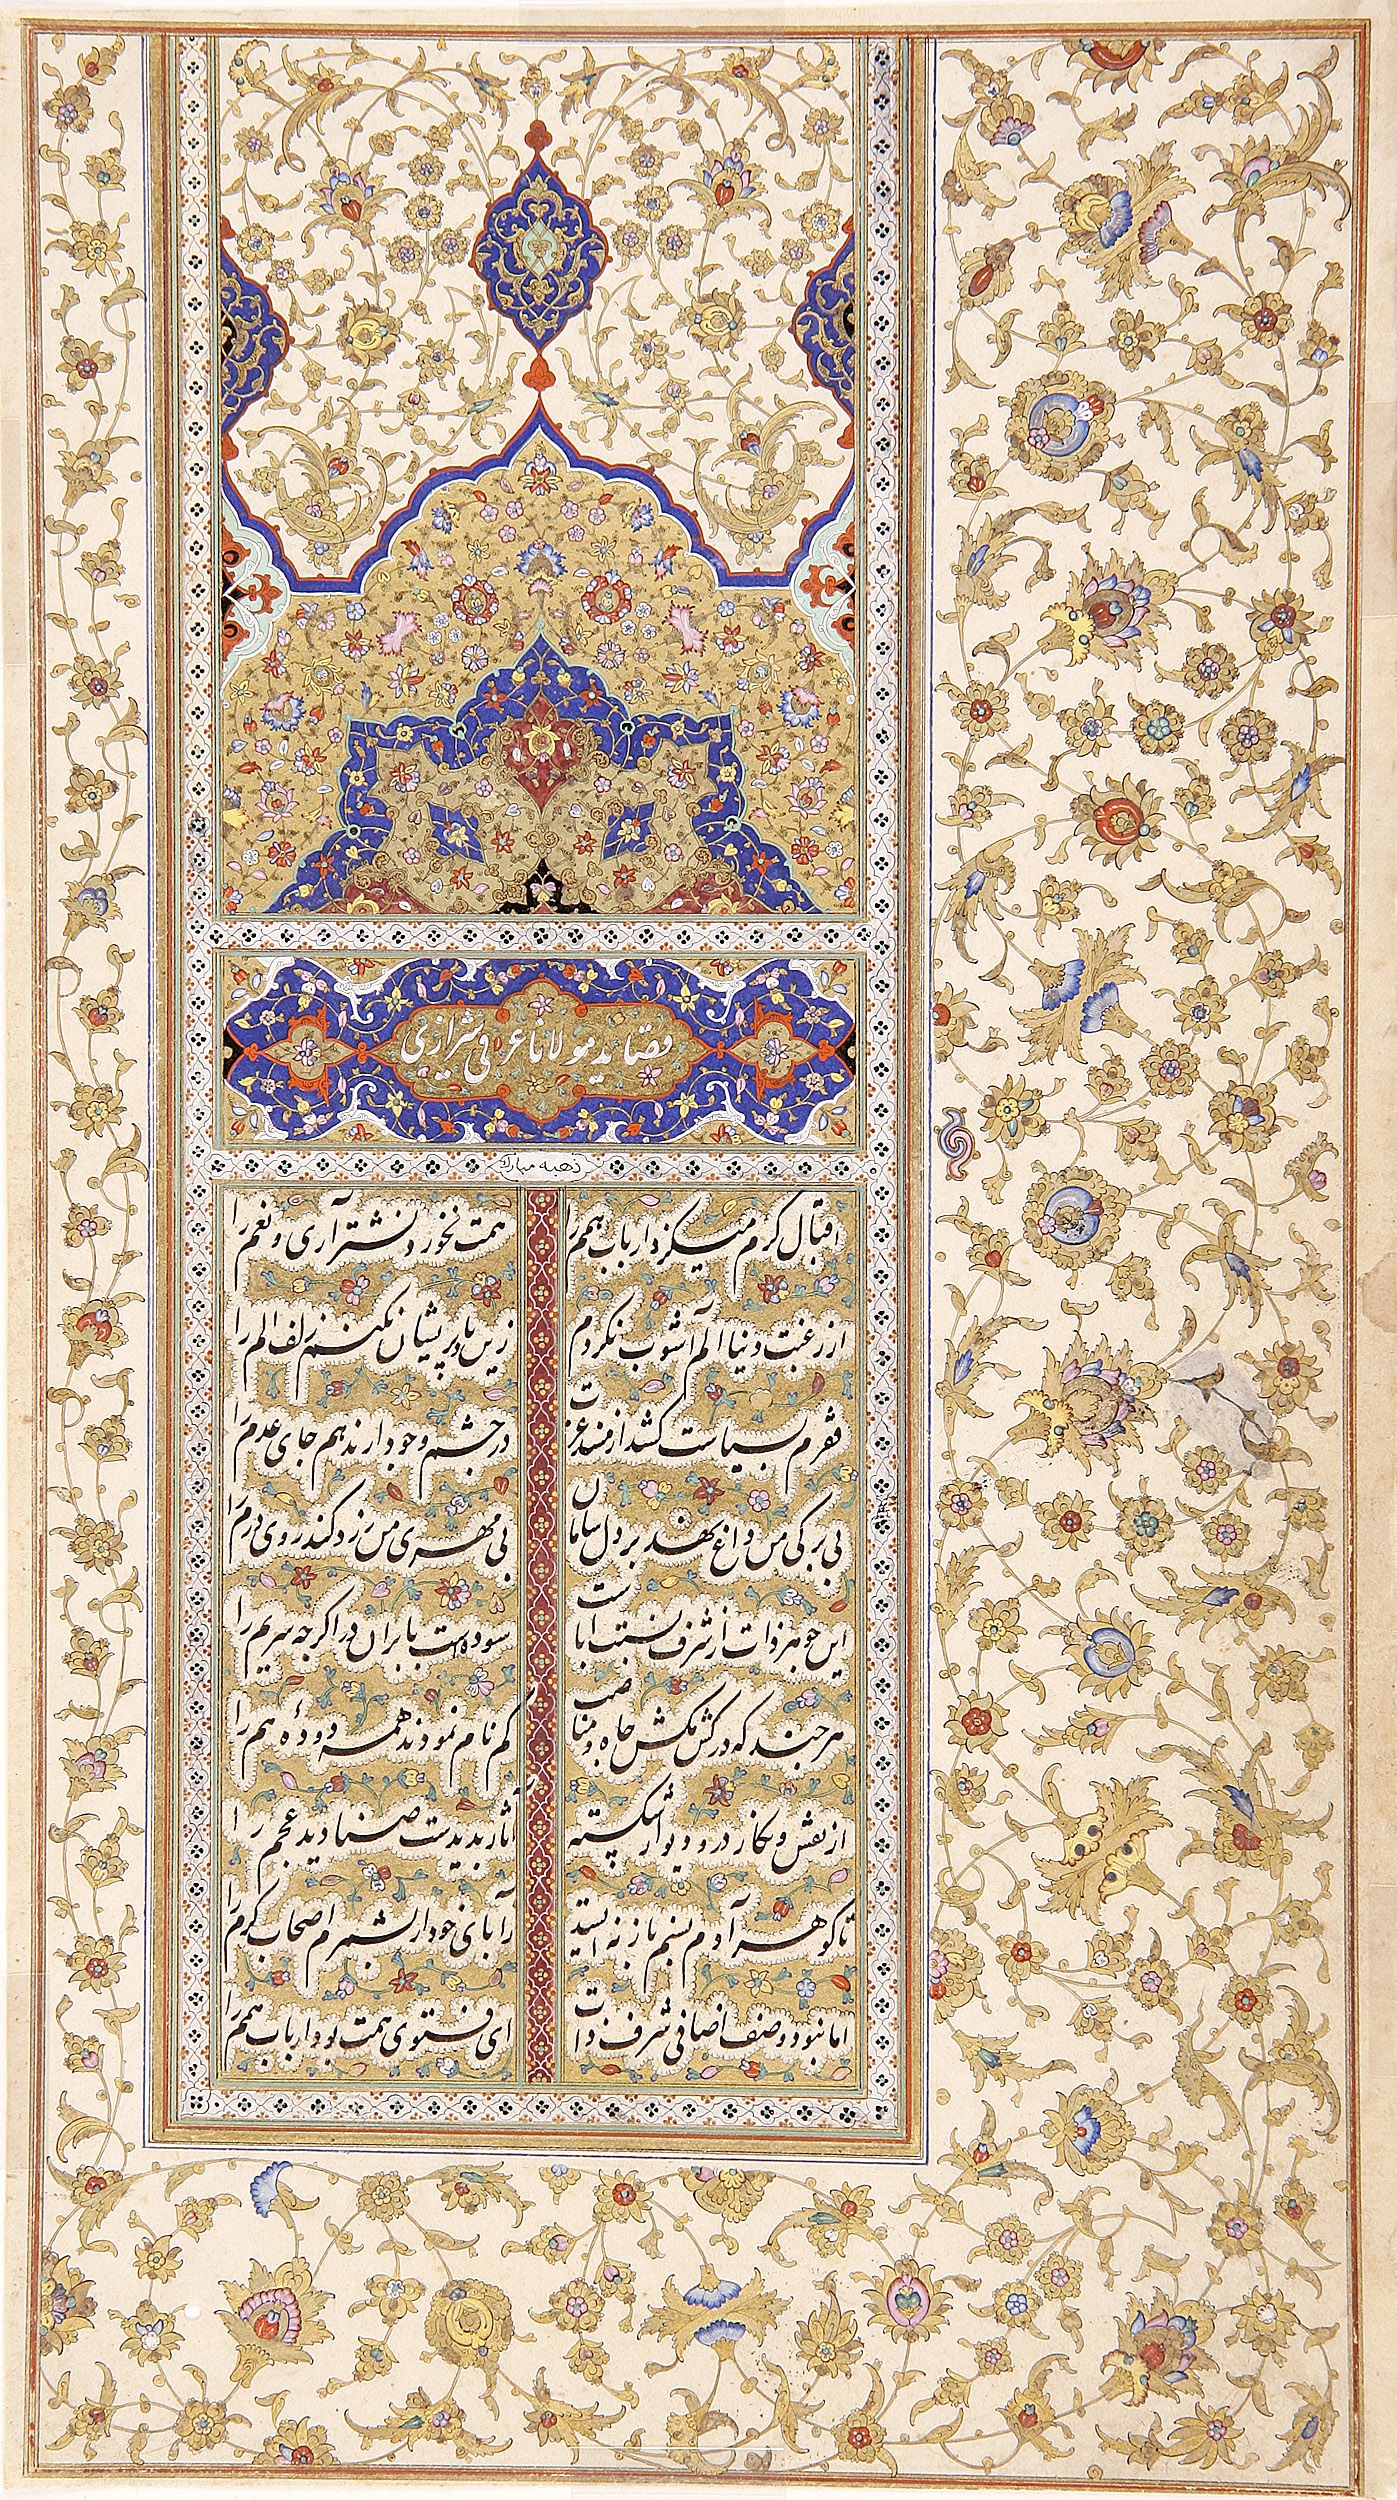 قصاید مولانا عرفی شیرازی
ذهبه مبارک
اقبال کرم میکزد ارباب همم را همت نخورد نشتر آری و نعم را
از رغبت دنیا الم آشوب نکردم زین باد پریشان نکنم زلف الم را
فقرم بسیاست کشد از مسند عزت در چشم وجود ارندهم جای عدم را
بی برکی من داغ نهد بر دل سامان بی مهری من زرد کند روی درم را
این جوهر ذات از شرف نسبت اباست در اکرچه را
هرچند که در کشمکش جاه و مناصب کم نام نمودند همه دودۀ هم را
از نقش و نکار در و دیوار شکسته آثار پدیدست صنادید عجم را
تا کوهر آدم نسبم باز نه استد ز آبای خود ار بشمرم اصحاب کرم را
اما نبود وصف اضافی شرف ذات ای فتوی همت بود ارباب همم را